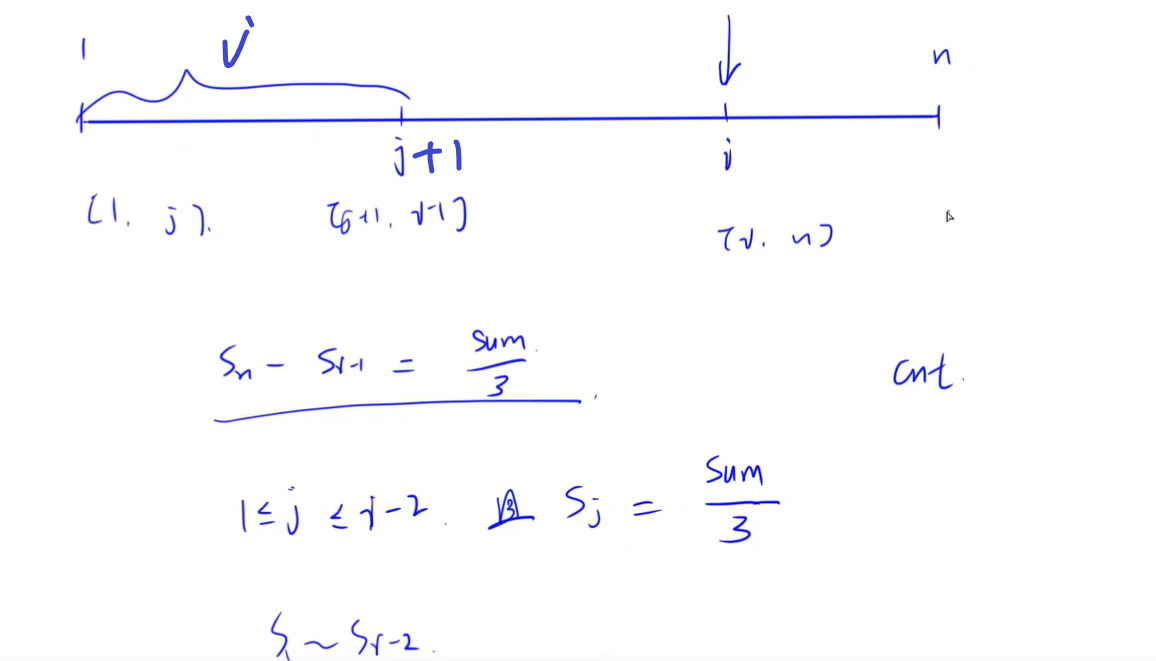 1 n
j+1 i
[1, j]. [j+1, i-1]
[i, n]
Sₙ - Sᵢ₋₁ = sum/3. cnt.
1 ≤ j ≤ i-2. 且 Sⱼ = sum/3
S₁ ~ Sᵢ₋₂.